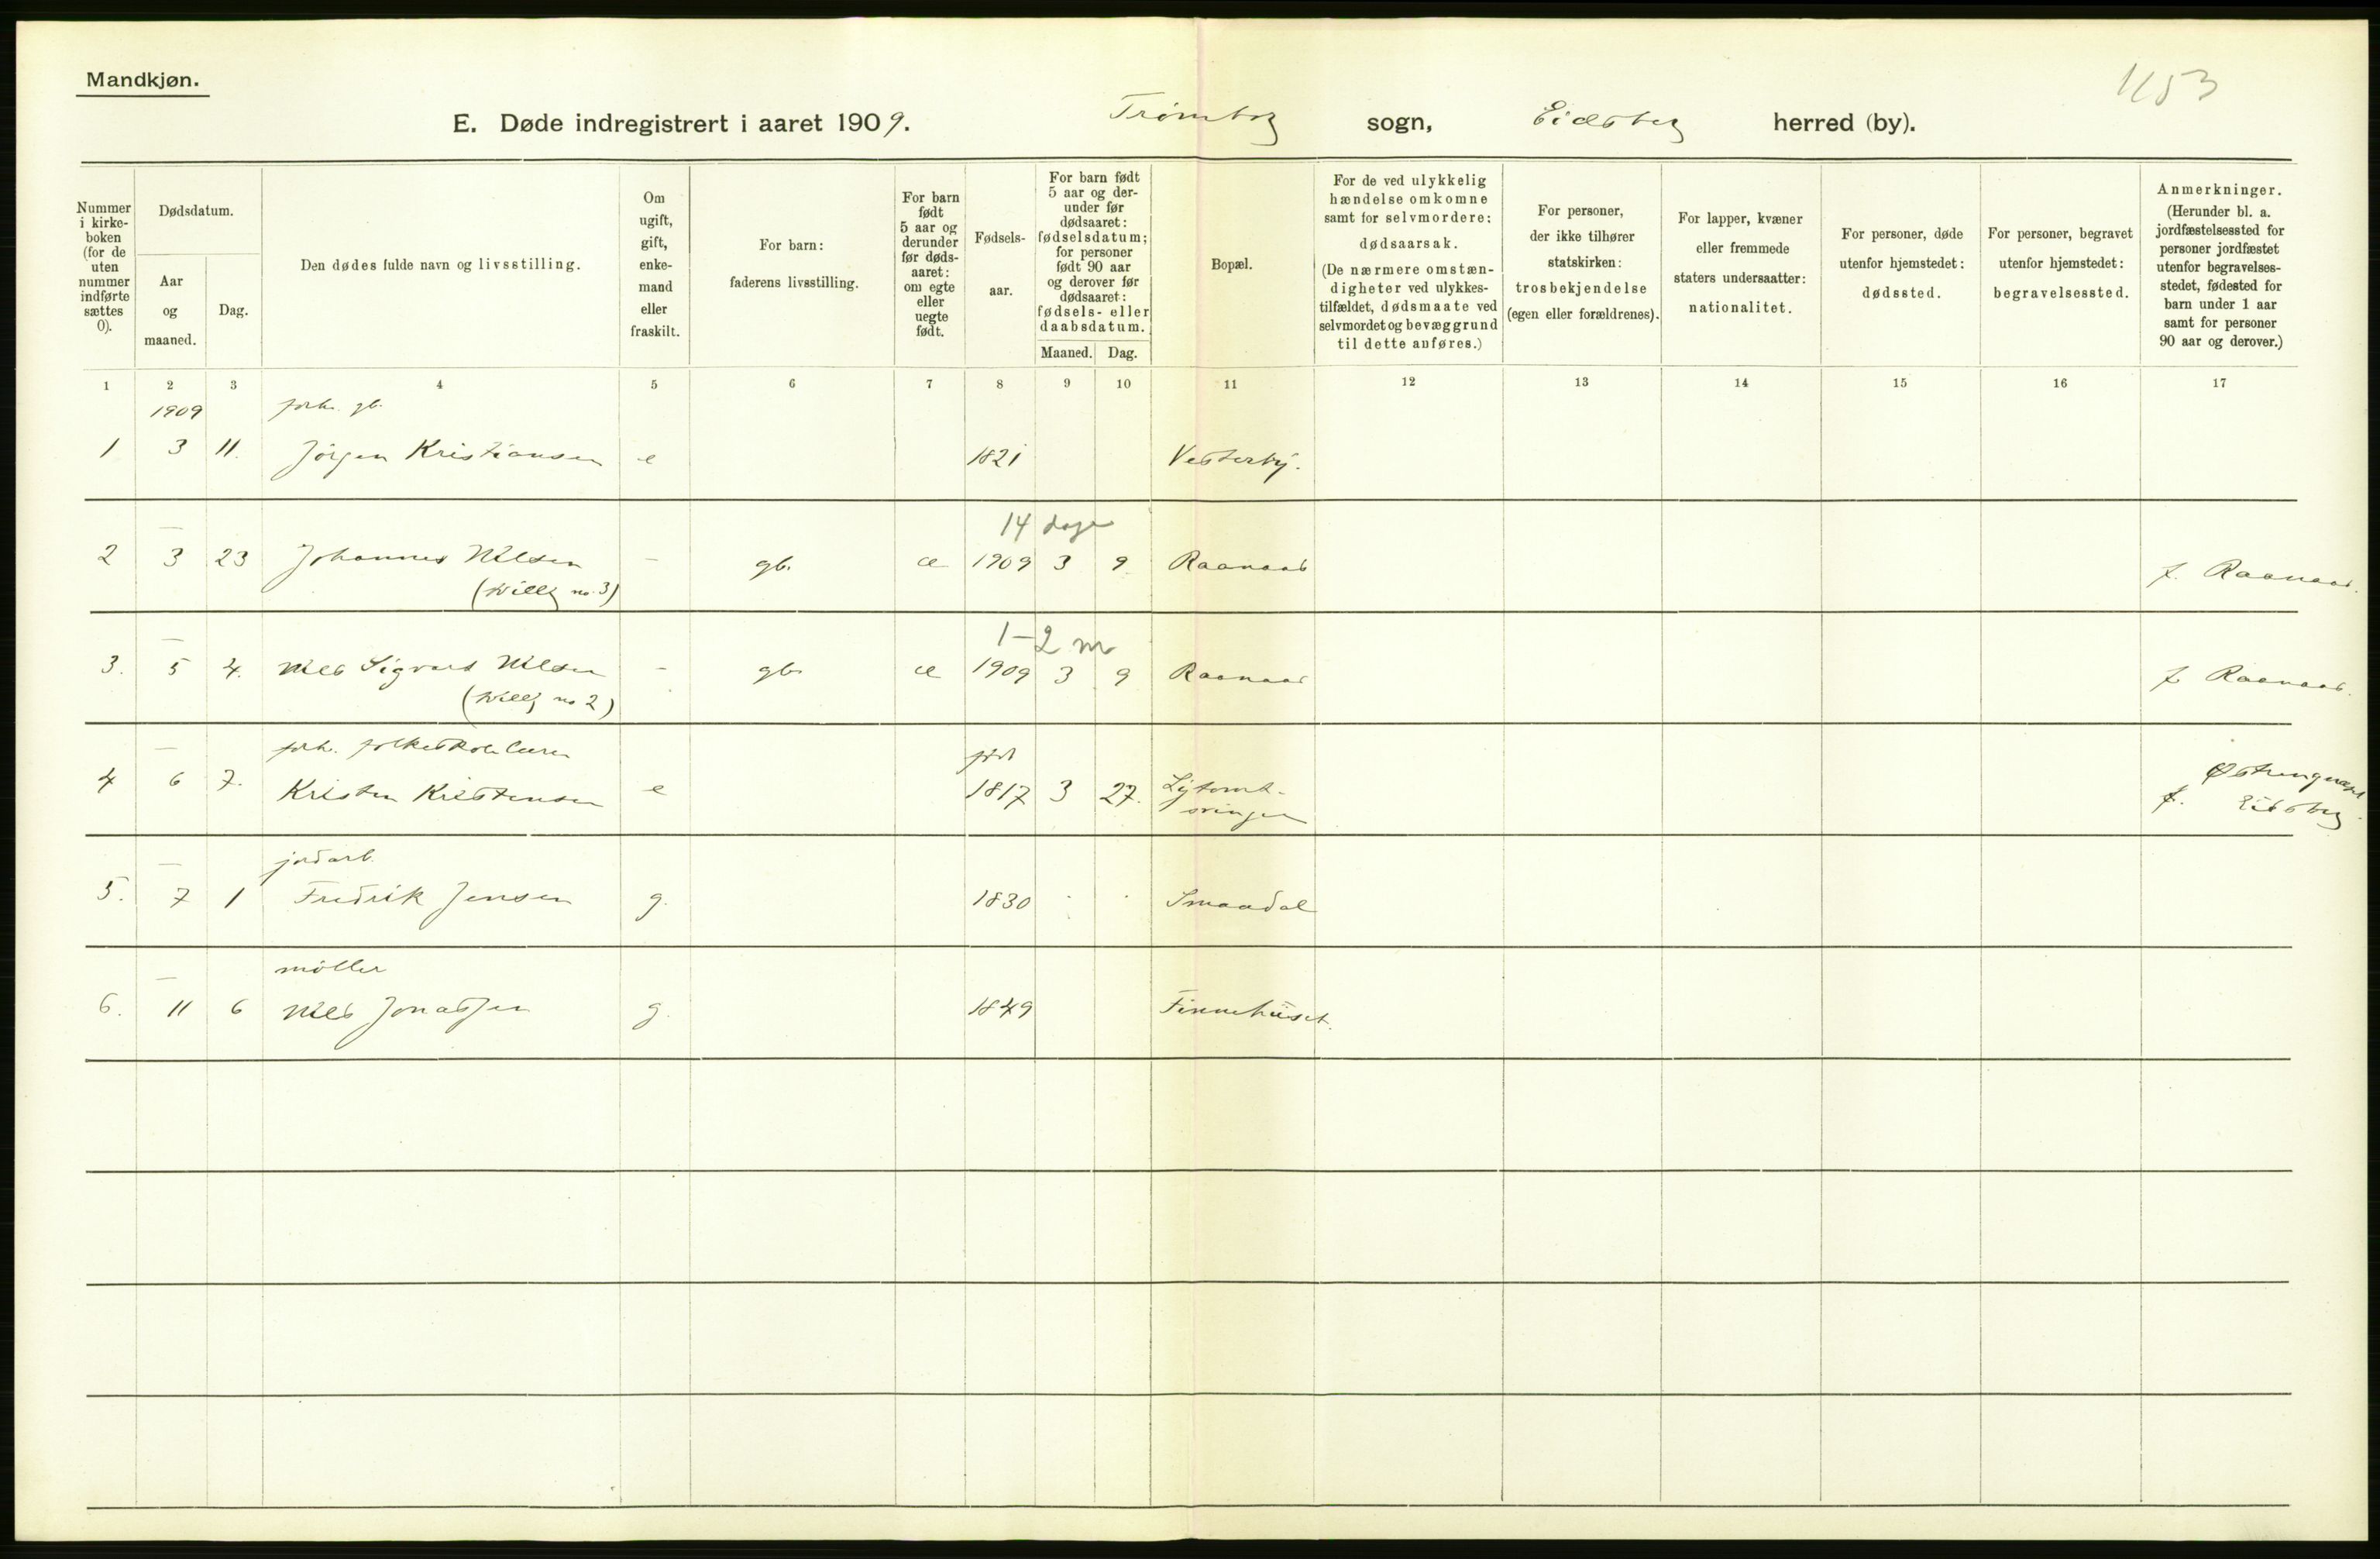 Mandkjøn.
1153
E. Døde indregistrert i aaret 1909. Trømborg sogn, Eidsberg herred (by).
Nummer i kirkeboken (for de uten nummer indførte sættes 0).
Dødsdatum.
Aar og maaned.
Dag.
Den dødes fulde navn og livsstilling.
Om ugift, gift, enkemand eller fraskilt.
For barn: faderens livsstilling.
For barn født 5 aar og derunder før dødsaaret: om egte eller uegte født.
Fødselsaar.
For barn født 5 aar og derunder før dødsaaret: fødselsdatum; for personer født 90 aar og derover før dødsaaret: fødsels- eller daabsdatum.
Maaned. Dag.
Bopæl.
For de ved ulykkelig hændelse omkomne samt for selvmordere: dødsaarsak. (De nærmere omstændigheter ved ulykkestilfældet, dødsmaate ved selvmordet og bevæggrund til dette anføres.)
For personer, der ikke tilhører statskirken: trosbekjendelse (egen eller forældrenes).
For lapper, kvæner eller fremmede staters undersaatter: nationalitet.
For personer, døde utenfor hjemstedet: dødssted.
For personer, begravet utenfor hjemstedet: begravelsessted.
Anmerkninger. (Herunder bl. a. jordfæstelsessted for personer jordfæstet utenfor begravelsesstedet, fødested for barn under 1 aar samt for personer 90 aar og derover.)
1 2 3 4 5 6 7 8 9 10 11 12 13 14 15 16 17
1909 forh. gb.
1 3 11. Jörgen Kristiansen e 1821 Vesterby.
— 14 dage
2 3 23 Johannes Nilsen — gb. æ 1909 3 9 Raanaas f. Raanaas.
(tvilling no. 3)
— 1-2 m
3. 5 4. Nils Sigvard Nilsen - gb. æ 1909 3 9 Raanaas f Raanaas.
(tvilling no 2)
— forh. folkeskolelærer født
4 6 7. Kristen Kristensen e 1817 3 27. f. Eidsberg
— jordarb.
5. 7 1 Fredrik Jensen g. 1830 Smaadal
— möller
6. 11 6 Nils Jonassen g. 1849 Finnehuset.